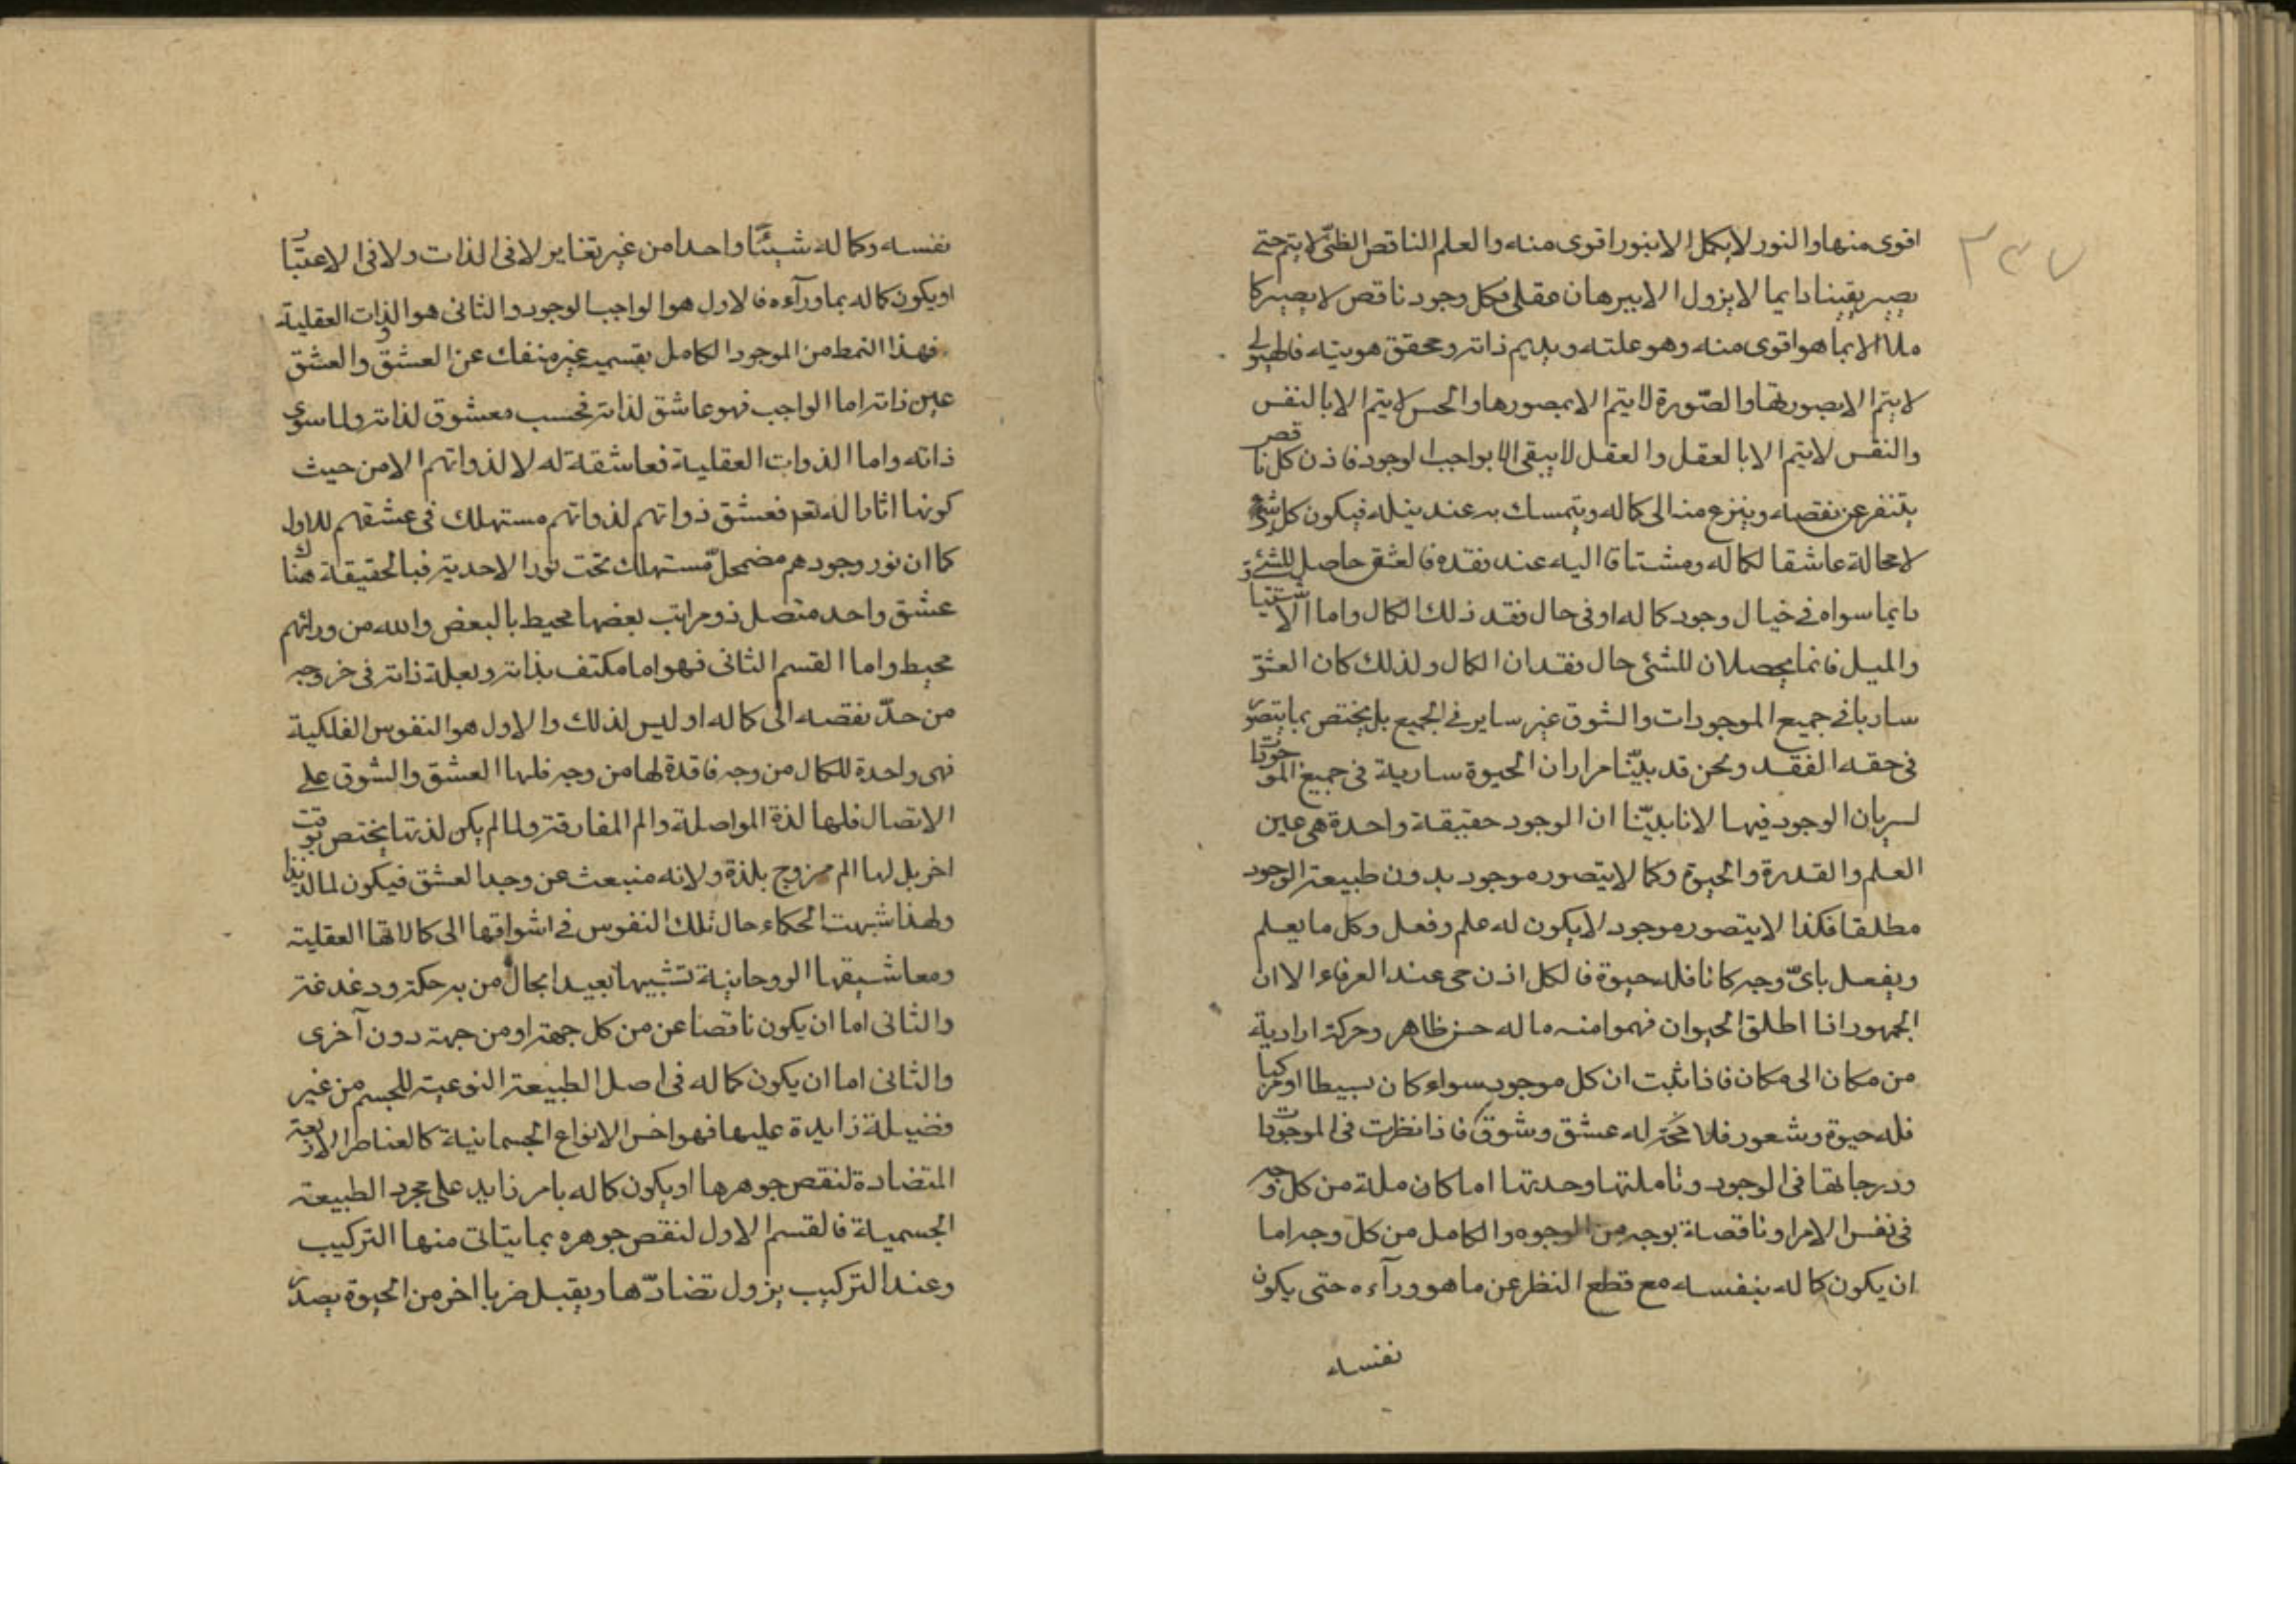 ۳۳۷
اقوى منها والنور لايكمل الا بنور اقوى منه والعلم الناقص الظنّى لا يتم حتى
يصير يقينا دايما لايزول الا ببرهان عقلى فكل وجود ناقص لا يصير كا
ملا الا بما هو اقوى منه وهو علته ويديم ذاته ومحقق هويته فالهيولى
لايتم الا بصورتها والصّورة لايتم الا بمصورها والحس لايتم الا بالنفس
والنفس لايتم الا بالعقل والعقل لايبقى الا بواجب الوجود فاذن كل ناقص
يتنفر عن نقصه وينزع منه الى كماله ويتمسك به عند نيله فيكون كل شئ
لامحالة عاشقا لكماله ومشتاقا اليه عند فقده فالعشق حاصل للشئ
دايما سواء فى خيال وجود كماله او فى حال فقد ذلك الكمال واما الاشتياق
والميل فانما يحصلان للشئ حال فقدان الكمال ولذلك كان العشق
ساريا فى جميع الموجودات والشوق غير ساير فى الجميع بل يختص بما يتصور
فى حقه الفقد ونحن قد بيّنّا مرارا ان الحيوة سارية فى جميع الموجودات
لسريان الوجود فيها لانا بيّنّا ان الوجود حقيقة واحدة هى عين
العلم والقدرة والحيوة وكما لايتصور موجود بدون طبيعة الوجود
مطلقا فكذا لايتصور موجود لايكون له علم وفعل وكل ما يعلم
ويفعل باىّ وجه كانا فله حيوة فالكل اذن حى عند العرفاء الا ان
الجمهور اذا اطلق الحيوان فهموا منه ما له حس ظاهر وحركة ارادية
من مكان الى مكان فاذا ثبت ان كل موجود سواء كان بسيطا او مركبا
فله حيوة وشعور فلا محة له عشق وشوق فاذا نظرت فى الموجودات
ودرجاتها فى الوجود وتاملتها وحدتها اما كاملة من كل وجه
فى نفس الامر او ناقصة بوجه من الوجوه والكامل من كل وجه اما
ان يكون كماله بنفسه مع قطع النظر عن ما هو ورآءه حتى يكون
نفسه
نفسه وكماله شيئًا واحدا من غير تغاير لا فى الذات ولا فى الاعتبار
او يكون كماله بما ورآءه فالاول هو الواجب الوجود والثانى هو الذوات العقلية
فهذا النمط من الموجود الكامل بقسميه غير منفك عن العشق والعشق
عين ذاته اما الواجب فهو عاشق لذاته فحسب معشوق لذاته ولما سوى
ذاته واما الذوات العقلية فعاشقة له لا لذواتهم الا من حيث
كونها اثارا له تعم فعشق ذواتهم لذواتهم مستهلك فى عشقهم للاول
كما ان نور وجودهم مضمحلّ مستهلك تحت نور الاحدية فبالحقيقة هناك
عشق واحد متصل ذو مراتب بعضها محيط بالبعض والله من ورائهم
محيط واما القسم الثانى فهو اما مكتف بذاته وبعلة ذاته فى خروجه
من حدّ نقصه الى كماله او ليس لذلك والاول هو النفوس الفلكية
فهى واحدة للكمال من وجه فاقدة لها من وجه فلها العشق والشوق على
الاتصال فلها لذة المواصلة والم المفارقة ولما لم يكن لذتها يختص بوقت
اخر بل لها الم ممزوج بلذة ولانه منبعث عن وجد العشق فيكون الما لذيذا
ولهذا شبهت الحكماء حال تلك النفوس فى اشواقها الى كمالاتها العقلية
ومعاشيقها الروحانية تشبيها بعيدا بحال من به حكة ودغدغة
والثانى اما ان يكون ناقصا عن من كل جهة او من جهة دون آخرى
والثانى اما ان يكون كماله فى اصل الطبيعة النوعية للجسم من غير
فضيلة زايدة عليها فهو اخس الانواع الجسمانية كالعناصر الاربعة
المتضادة لنقص جوهرها او يكون كماله بامر زايد على مجرد الطبيعة
الجسمية فالقسم الاول لنقص جوهره بما يتاتى منها التركيب
وعند التركيب يزول تضادّها ويقبل ضربا اخر من الحيوة